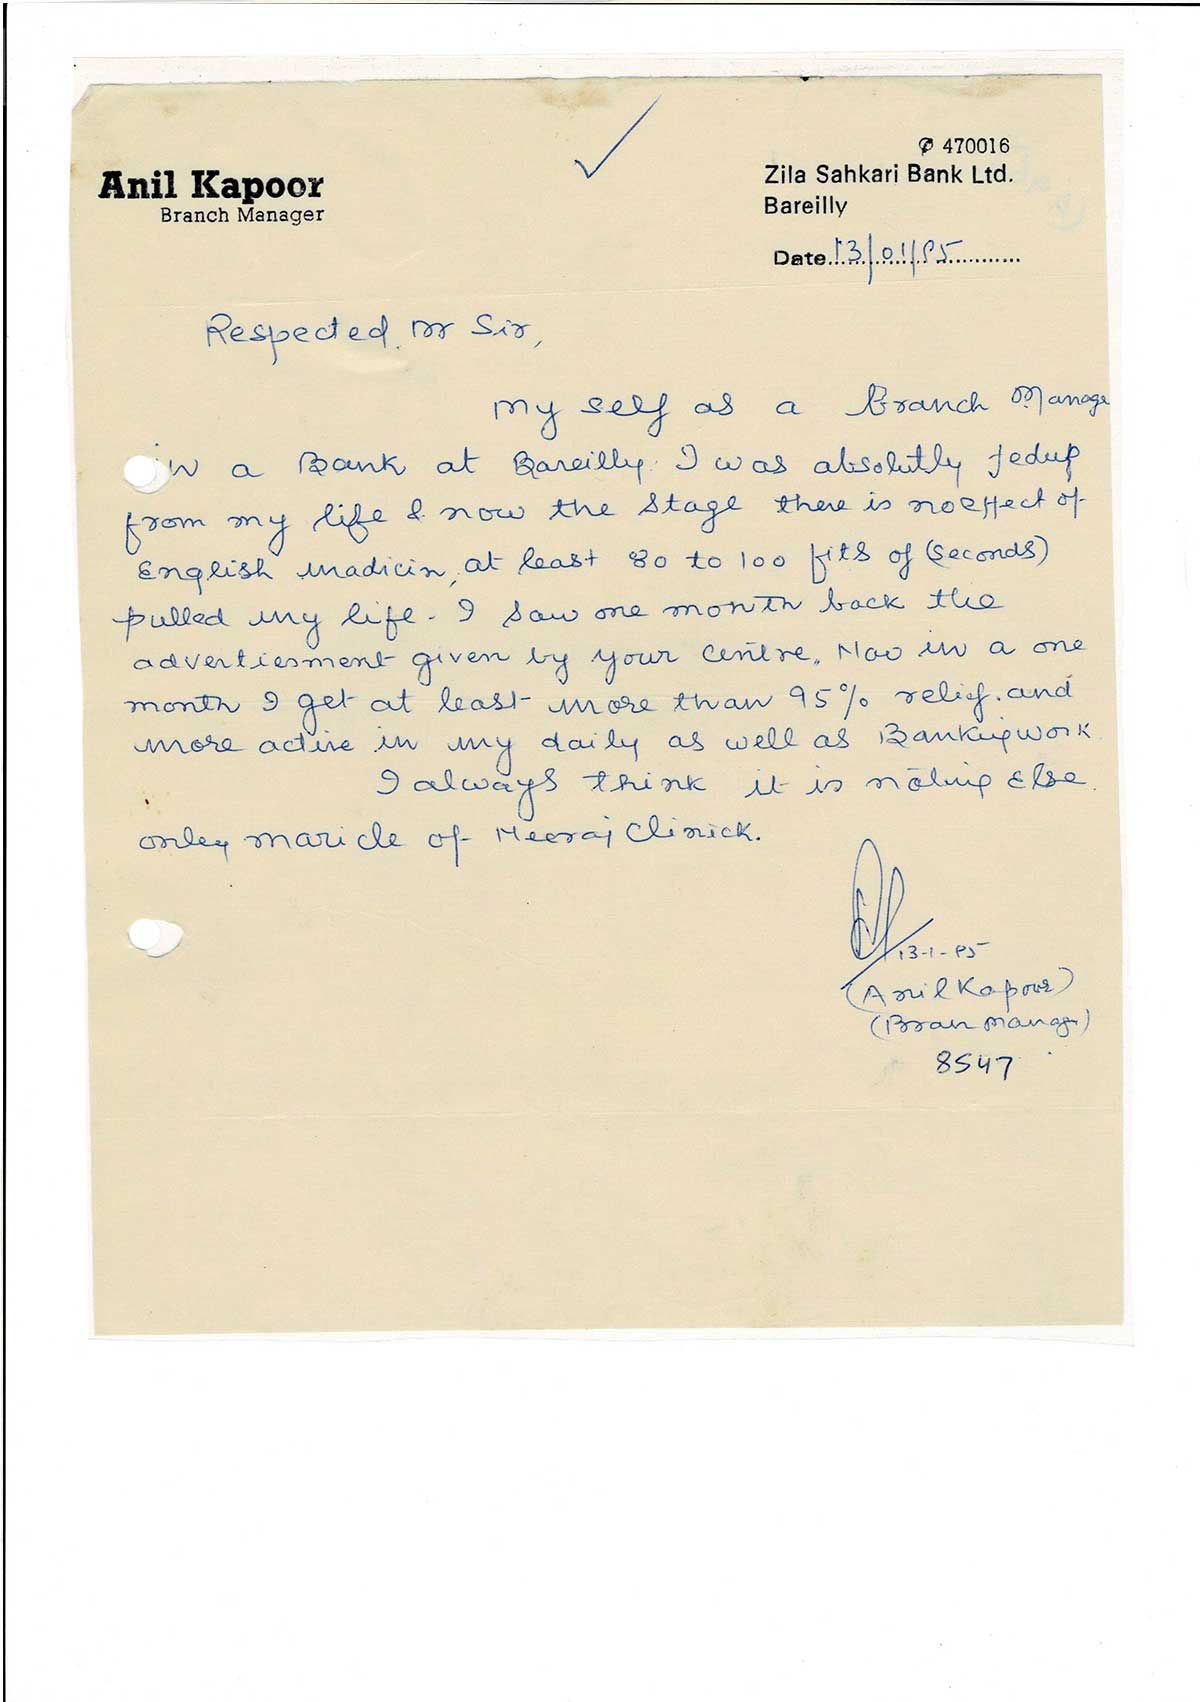 470016
Anil Kapoor
Branch Manager
Zila Sahkari Bank Ltd.
Bareilly
Date 13/01/95
Respected Dr Sir,
My self as a Branch Manage
in a Bank at Bareilly. I was absolutly fedup
from my life & now the stage there is no effect of
English madicin, at least 80 to 100 fits of (seconds)
pulled my life. I saw one month back the
advertiesment given by your centre. Now in a one
month I get at least more than 95% relief. and
more active in my daily as well as Banking work.
I always think it is nothing else
onley maricle of Neeraj Clinick.
13-1-95
(Anil Kapoor)
(Bran Manager)
8547